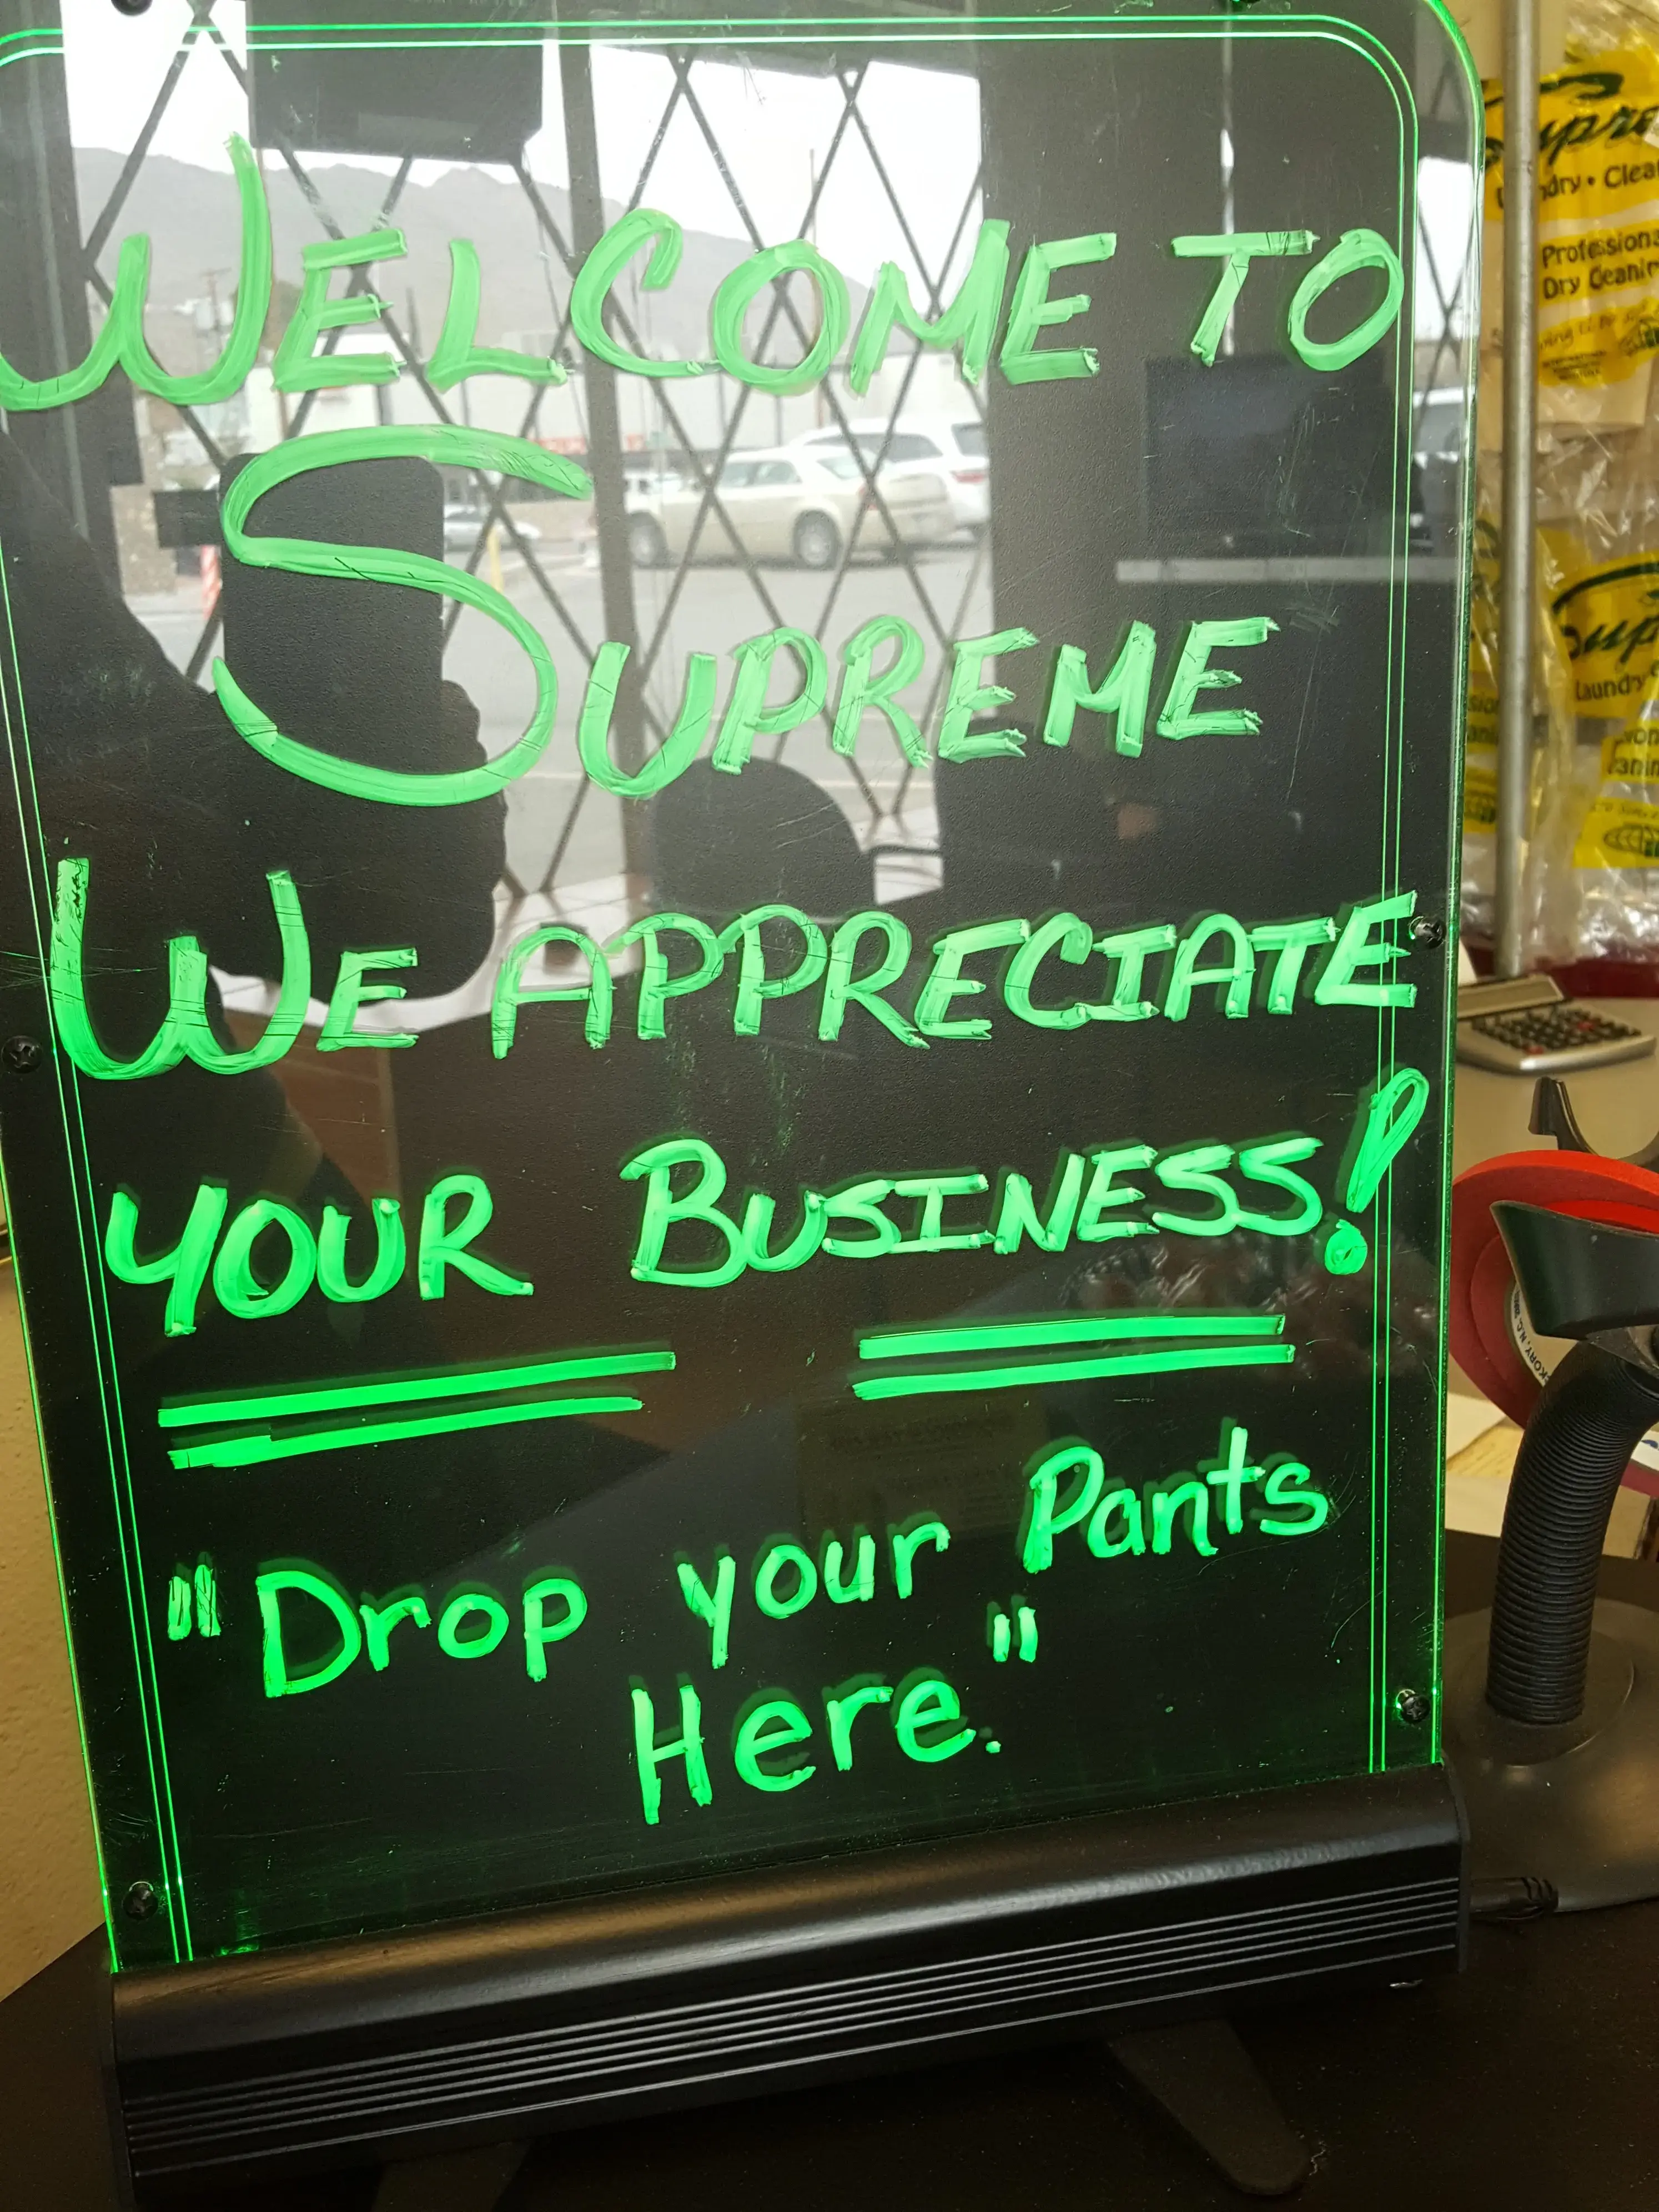 WELCOME TO
SUPREME
WE APPRECIATE
YOUR BUSINESS!
"Drop your Pants
Here."
Professional
Dry Cleaning
Laundry